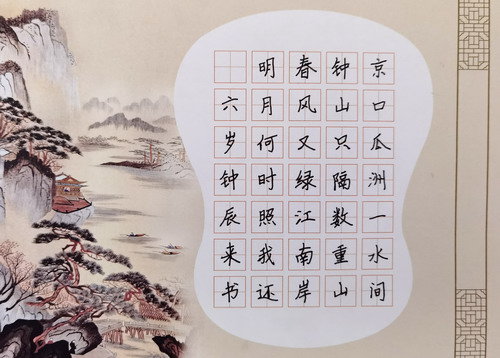 京口瓜洲一水间
钟山只隔数重山
春风又绿江南岸
明月何时照我还
六岁钟辰来书